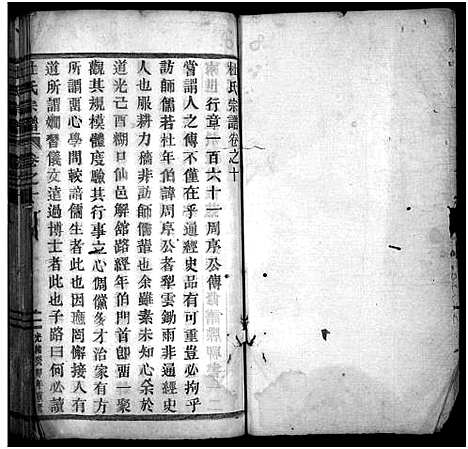 杜氏宗譜卷之十
行章一百六十一周序公傳
嘗謂人之傳不僅在乎通經史品有可重豈必拘乎
訪師儒若杜年伯諱周序公者犁雲鋤雨非通經史
人也服耕力穡非訪師儒輩也余雖素未知心余於
道光己酉餬口仙邑解館路經年伯門首卽晤一聚
觀其規模體度驗其行事立心倜儻多才治家有方
所謂蘭心學問較諸儒生者此也因應酬懈接人有
道所謂嫻習儀文遠過博士者此也子路曰何必讀
杜氏宗譜 卷之十